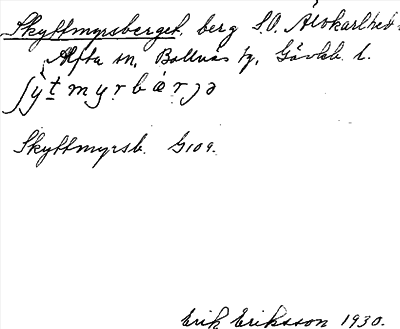 Skyttmyrsberget, berg S.O. Älvkarlhed
Alfta sn, Bollnäs tg, Gävleb. l.
Skyttmyrsb. G109.
Erik Eriksson 1930.